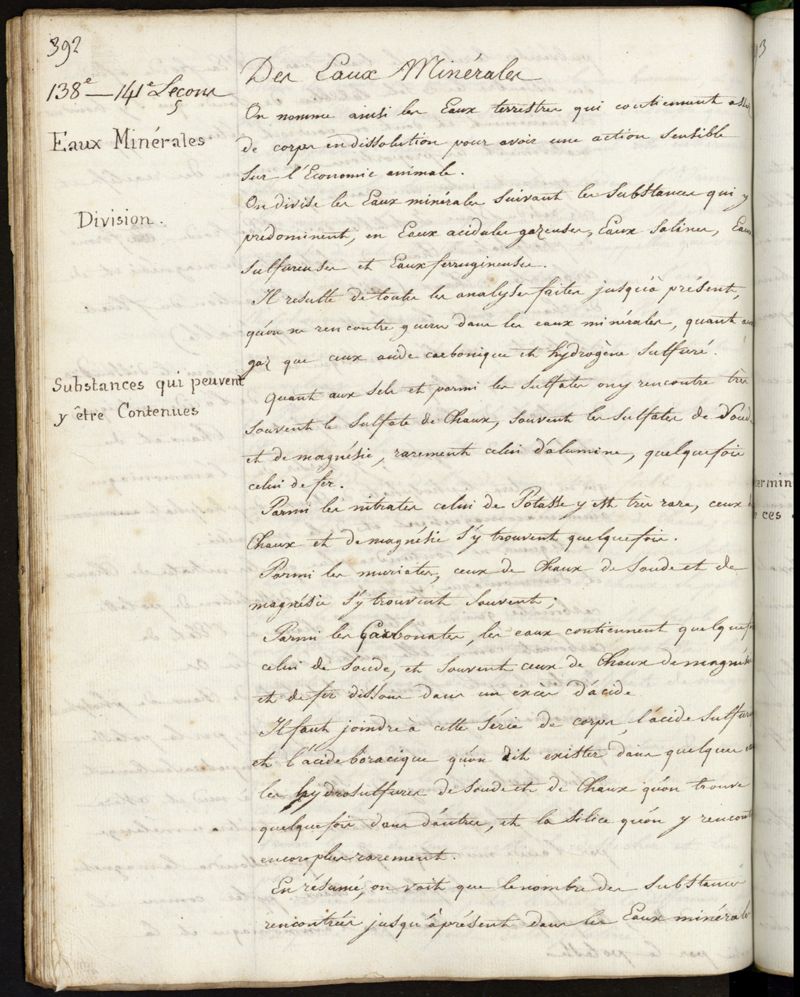 392
138e — 141e Leçons
Eaux Minérales
Division.
Substances qui peuvent
y être Contenues
Des Eaux Minérales
On nomme ainsi les Eaux terrestres qui contiennent
de corps en dissolution pour avoir une action Sensible
Sur l'Economie animale.
On divise les Eaux minérales Suivant les Substances qui y
prédominent, en Eaux acidules gazeuses, Eaux Salines, Eaux
Sulfureuses et Eaux ferrugineuses.
Il resulte de toutes les analyses faites jusqu'à présent,
qu'on ne rencontre guères dans les eaux minérales, quant aux
gaz que ceux acide carbonique et hydrogène Sulfuré.
Quant aux Sels et parmi les Sulfates on y rencontre très
Souvent le Sulfate de Chaux, Souvent les Sulfates de Soude
et de magnésie, rarement celui d'alumine, quelquefois
celui de fer.
Parmi les nitrates celui de Potasse y est très rare, ceux de
Chaux et de magnésie S'y trouvent quelquefois.
Parmi les muriates, ceux de Chaux de Soude et de
magnésie S'y trouvent Souvent;
Parmi les Carbonates, les eaux contiennent quelquefois
celui de Soude, et Souvent ceux de Chaux de magnésie
et de fer dissous dans un excès d'acide
Il faut joindre à cette Série de corps, l'acide Sulfureux
et l'acide boracique qu'on dit exister dans quelques
les hydrosulfures de Soude et de Chaux qu'on trouve
quelquefois dans d'autres, et la Silice qu'on y rencontre
encore plus rarement.
En résumé, on voit que le nombre des Substances
rencontrées jusqu'à présent dans les Eaux minérales
3
ermin
ces